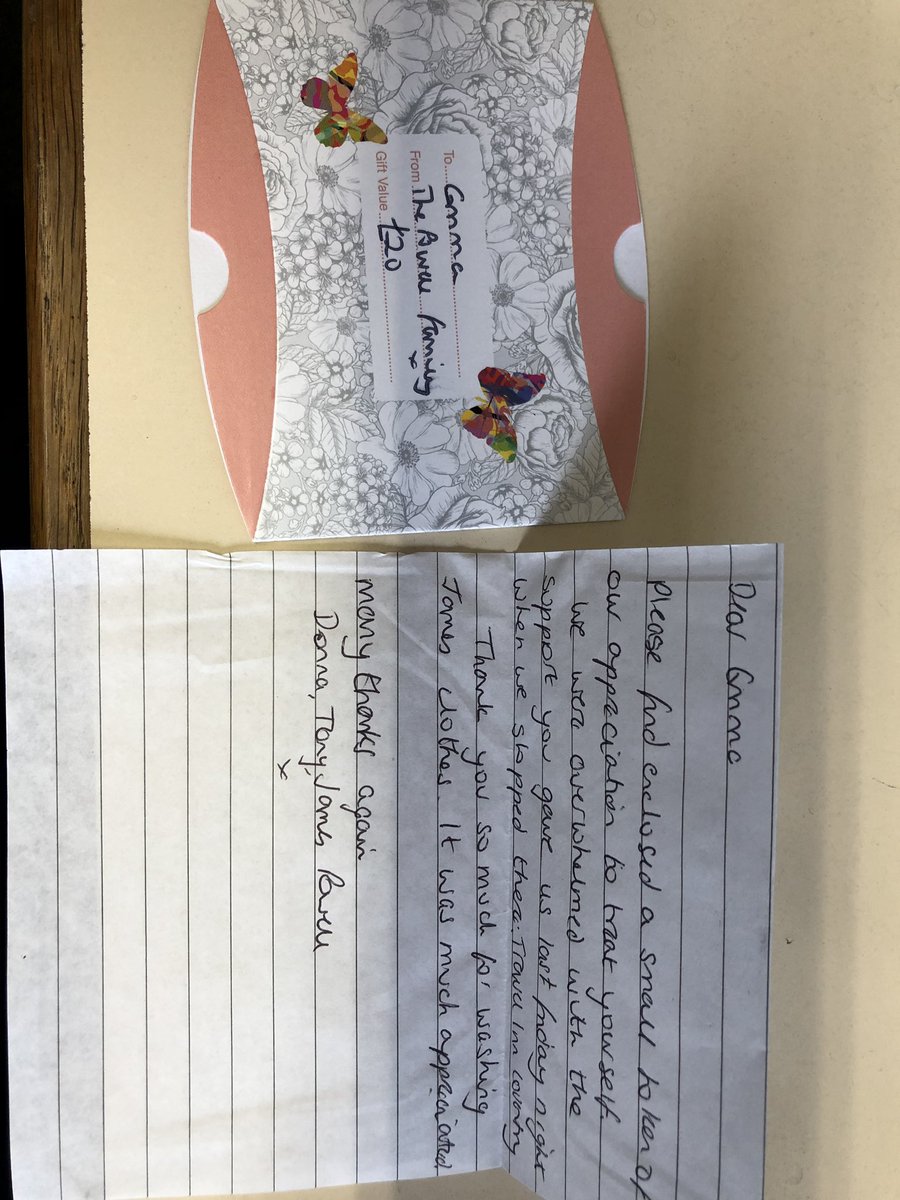 To Emma
From The Family x
Gift Value £20
Dear Emma
Please find enclosed a small token of
our appreciation to treat yourself.
We were overwhelmed with the
support you gave us last friday night
when we stopped there. Travel Inn coventry
Thank you so much for washing
James clothes. It was much appreciated
many thanks again
Donna, Tony, James
x